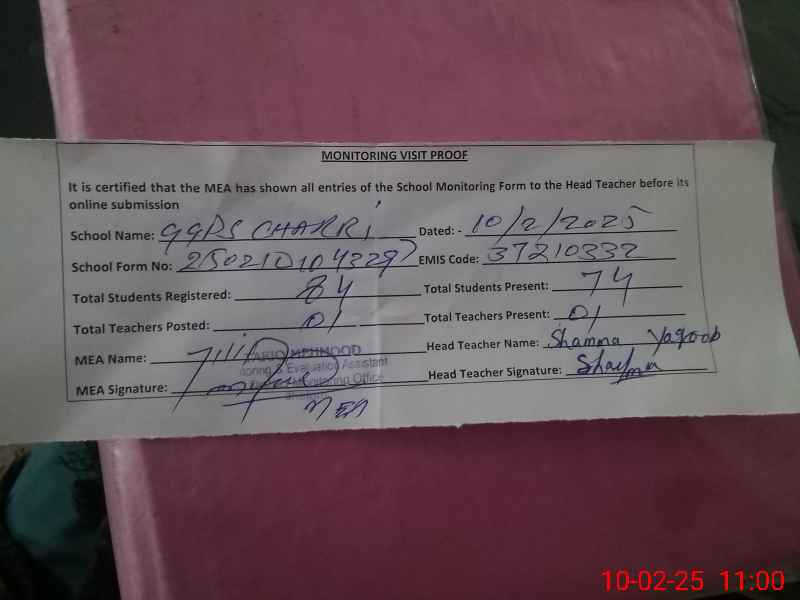 MONITORING VISIT PROOF
It is certified that the MEA has shown all entries of the School Monitoring Form to the Head Teacher before its
online submission
School Name: GGPS CHAKRI Dated: - 10/2/2025
School Form No: EMIS Code: 37210332
Total Students Registered: 84 Total Students Present: 74
Total Teachers Posted: 01 Total Teachers Present: 01
MEA Name: Head Teacher Name: Shamma Yaqoob
MEHMOOD
& Evaluation Assistant
Monitoring Office
MEA Signature: Head Teacher Signature:
MEA
10-02-25 11:00